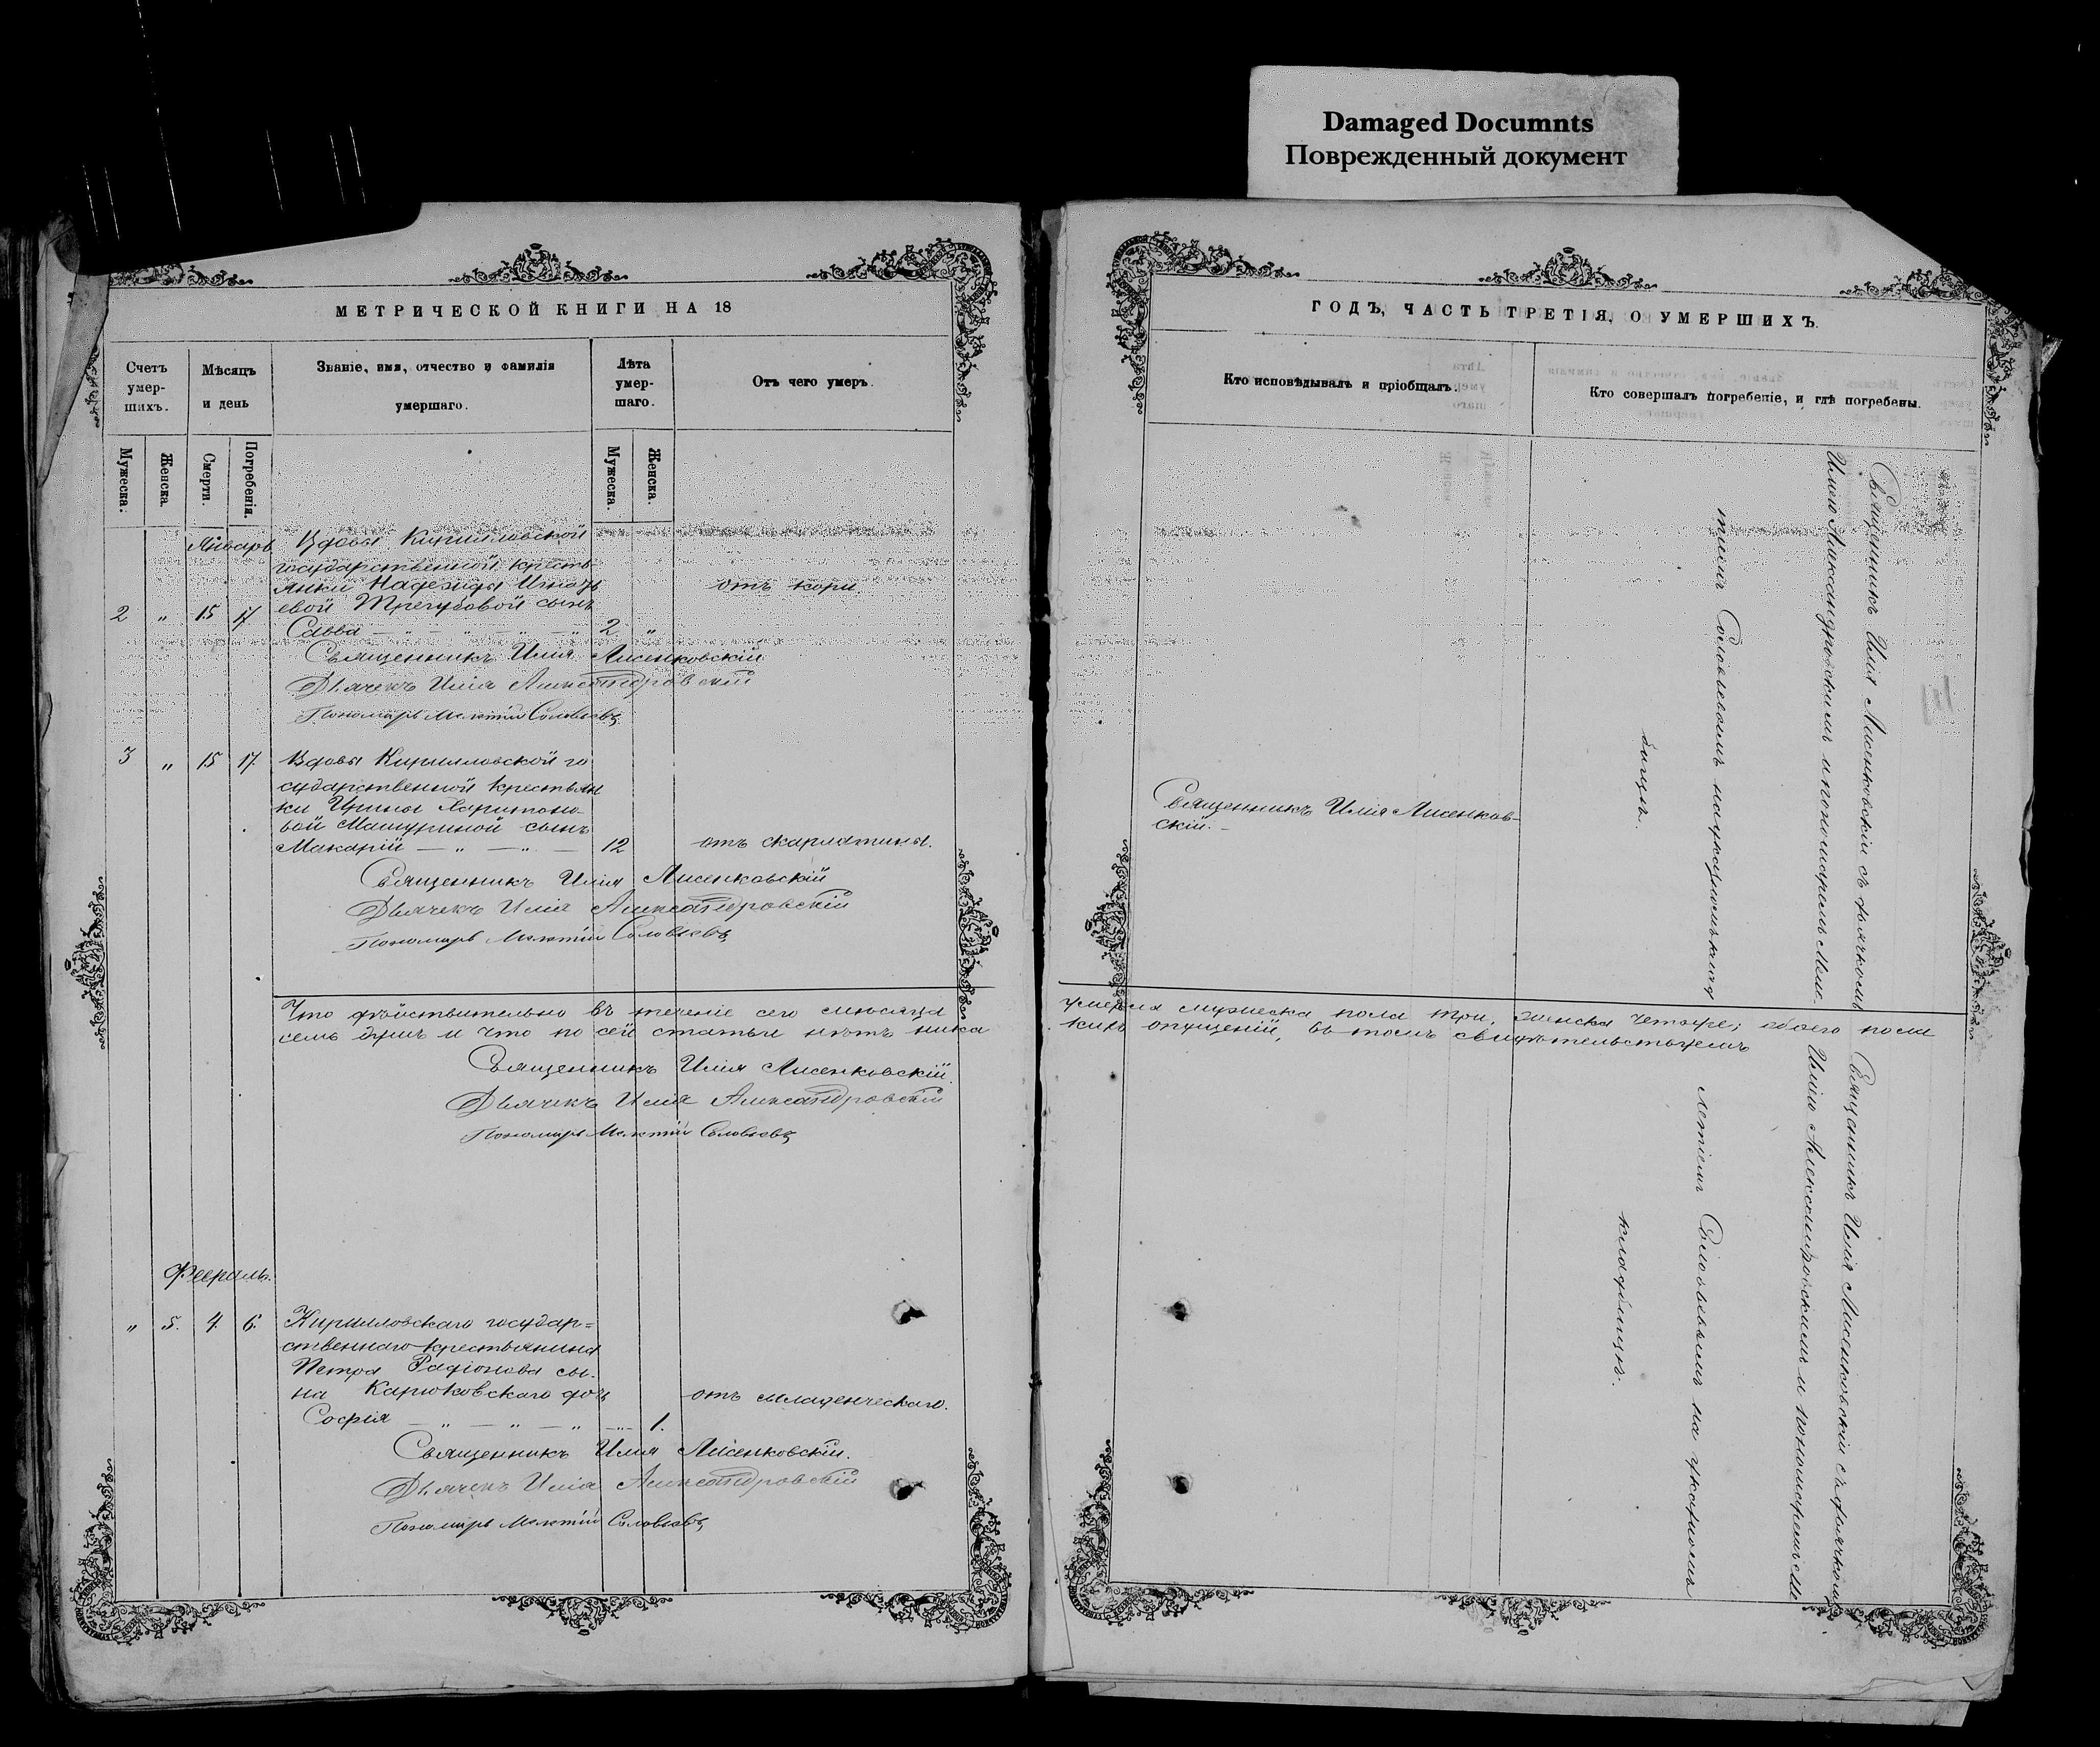 Damaged Documnts
Поврежденный документ
МЕТРИЧЕСКОЙ КНИГИ НА 18
Счетъ умер-шихъ.
Мѣсяцъ и день
Званіе, имя, отчество и фамилія умершаго.
Лѣта умер-шаго.
Отъ чего умеръ.
Мужеска.
Женска.
Смерти.
Погребенія.
Мужеска.
Женска.
Январь
Вдовы Кирилловской
государственной кресть
янки Надежды Игнать
евой Трегубовой сынъ
2 " 15 17
Савва 2 "
отъ кори.
Священникъ Илія Лисенковскій
Дьячекъ Илія Александровскій
Пономарь Мелетій Соловьевъ
3 " 15 17
Вдовы Кирилловской го
сударственной крестьян
ки Ирины Харитоно-
вой Машуриной сынъ
Макарій — " — " — 12
отъ скарлатины.
Священникъ Илія Лисенковскій
Дьячекъ Илія Александровскій
Пономарь Мелетій Соловьевъ
Что дѣйствительно въ теченіе сего мѣсяца
семь душъ и что по сей статьи нѣтъ ника
Священникъ Илія Лисенковскій.
Дьячекъ Илія Александровскій
Пономарь Мелетій Соловьевъ
Февраль.
" 5. 4. 6.
Кирилловскаго государ=
ственнаго крестьянина
Петра Радіонова сы-
на Карюковскаго дочь
Софія — " — " — " 1.
отъ младенческаго.
Священникъ Илія Лисенковскій.
Дьячекъ Илія Александровскій
Пономарь Мелетій Соловьевъ
ГОДЪ, ЧАСТЬ ТРЕТІЯ, О УМЕРШИХЪ.
Кто исповѣдывалъ и пріобщалъ.
Кто совершалъ погребеніе, и гдѣ погребены.
Священникъ Илія Лисенков-
скій. -
Священникъ Илія Лисенковскій съ дьячкомъ
Иліею Александровскимъ и пономаремъ Меле-
тіемъ Соловьевымъ на
бищѣ.
умерли мужеска пола три, женска четыре; обоего пола
кихъ опущеній, въ томъ свидѣтельствуемъ
Священникъ Илія Лисенковскій съ дьячкомъ
Иліею Александровскимъ и пономаремъ Ме
летіемъ Соловьевымъ на
кладбищѣ.